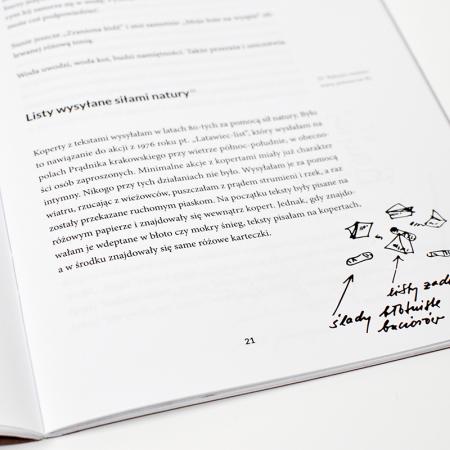 może coś podpowiedzieć.
Sanie jeszcze „Zraniona łódź” i stoi samotnie „Moje łoże na wyspie”
Woda uwodzi, woda koi, budzi namiętności. Także przeraża i unicestwia.
Listy wysyłane siłami natury
Koperty z tekstami wysyłałam w latach 80-tych za pomocą sił natury. Było
to nawiązanie do akcji z 1976 roku pt. „Latawiec-list”, który wysłałam na
polach Prądnika krakowskiego przy wietrze północ-południe, w obecno-
ści osób zaproszonych. Minimalne akcje z kopertami miały już charakter
intymny. Nikogo przy tych działaniach nie było. Wysyłałam je za pomocą
wiatru, rzucając z wieżowców, puszczałam z prądem strumieni i rzek, a raz
zostały przekazane ruchomym piaskom. Na początku teksty były pisane na
różowym papierze i znajdowały się wewnątrz kopert. Jednak, gdy znajdo-
wałam je wdeptane w błoto czy mokry śnieg, teksty pisałam na kopertach,
a w środku znajdowały się same różowe karteczki.
listy
ślady
buciorów
21